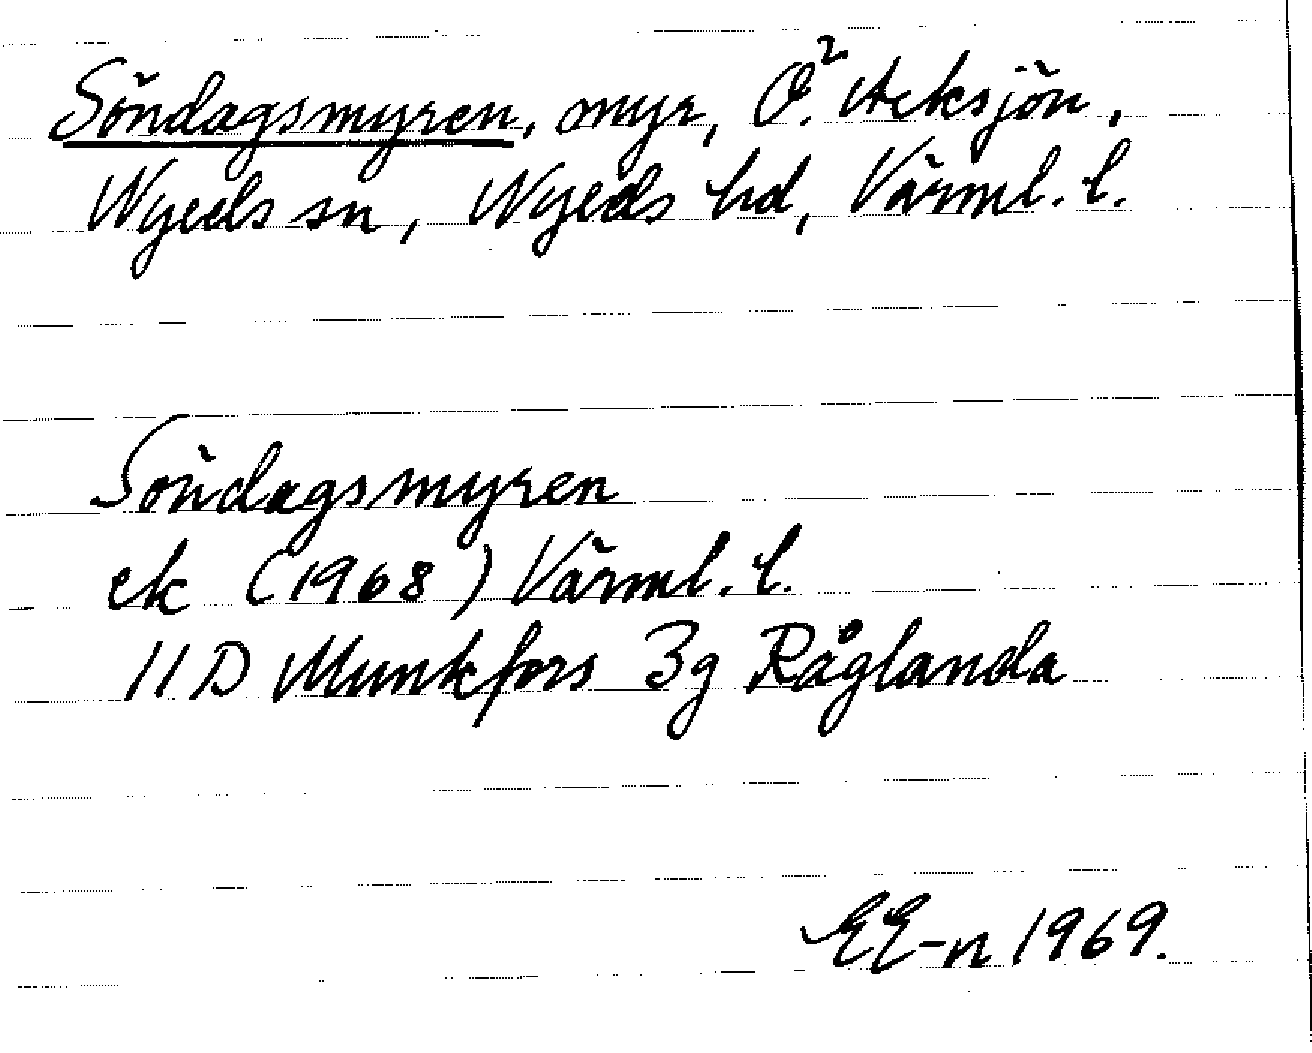 Söndagsmyren, myr, O.² Acksjön,
Nyeds sn, Nyeds hd, Värml. l.
Söndagsmyren
ek (1968) Värml. l.
11 D Munkfors 3g Råglanda
EE-n 1969.